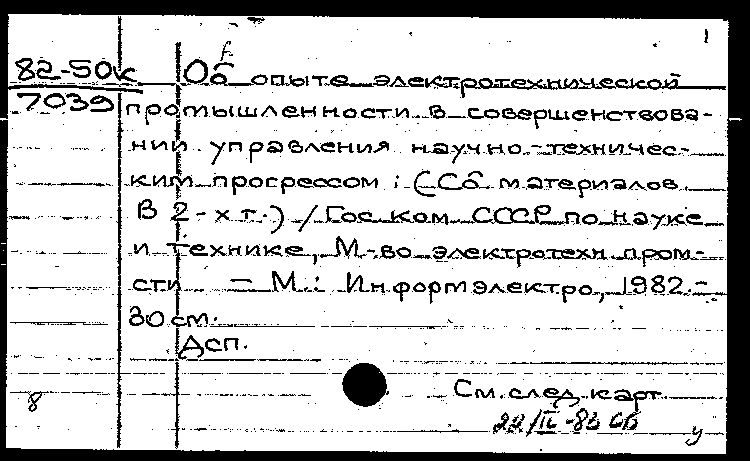 1
82-50к Об опыте электротехнической
7039 промышленности в совершенствова-
нии управления научно-техничес-
ким прогрессом : (Сб материалов
В 2-х т.) / Гос ком СССР по науке
и технике, М-во электротехн. пром-
сти — М.: Информэлектро, 1982.-
30 см.
Дсп.
См. след. карт
8
22/IV-83
у